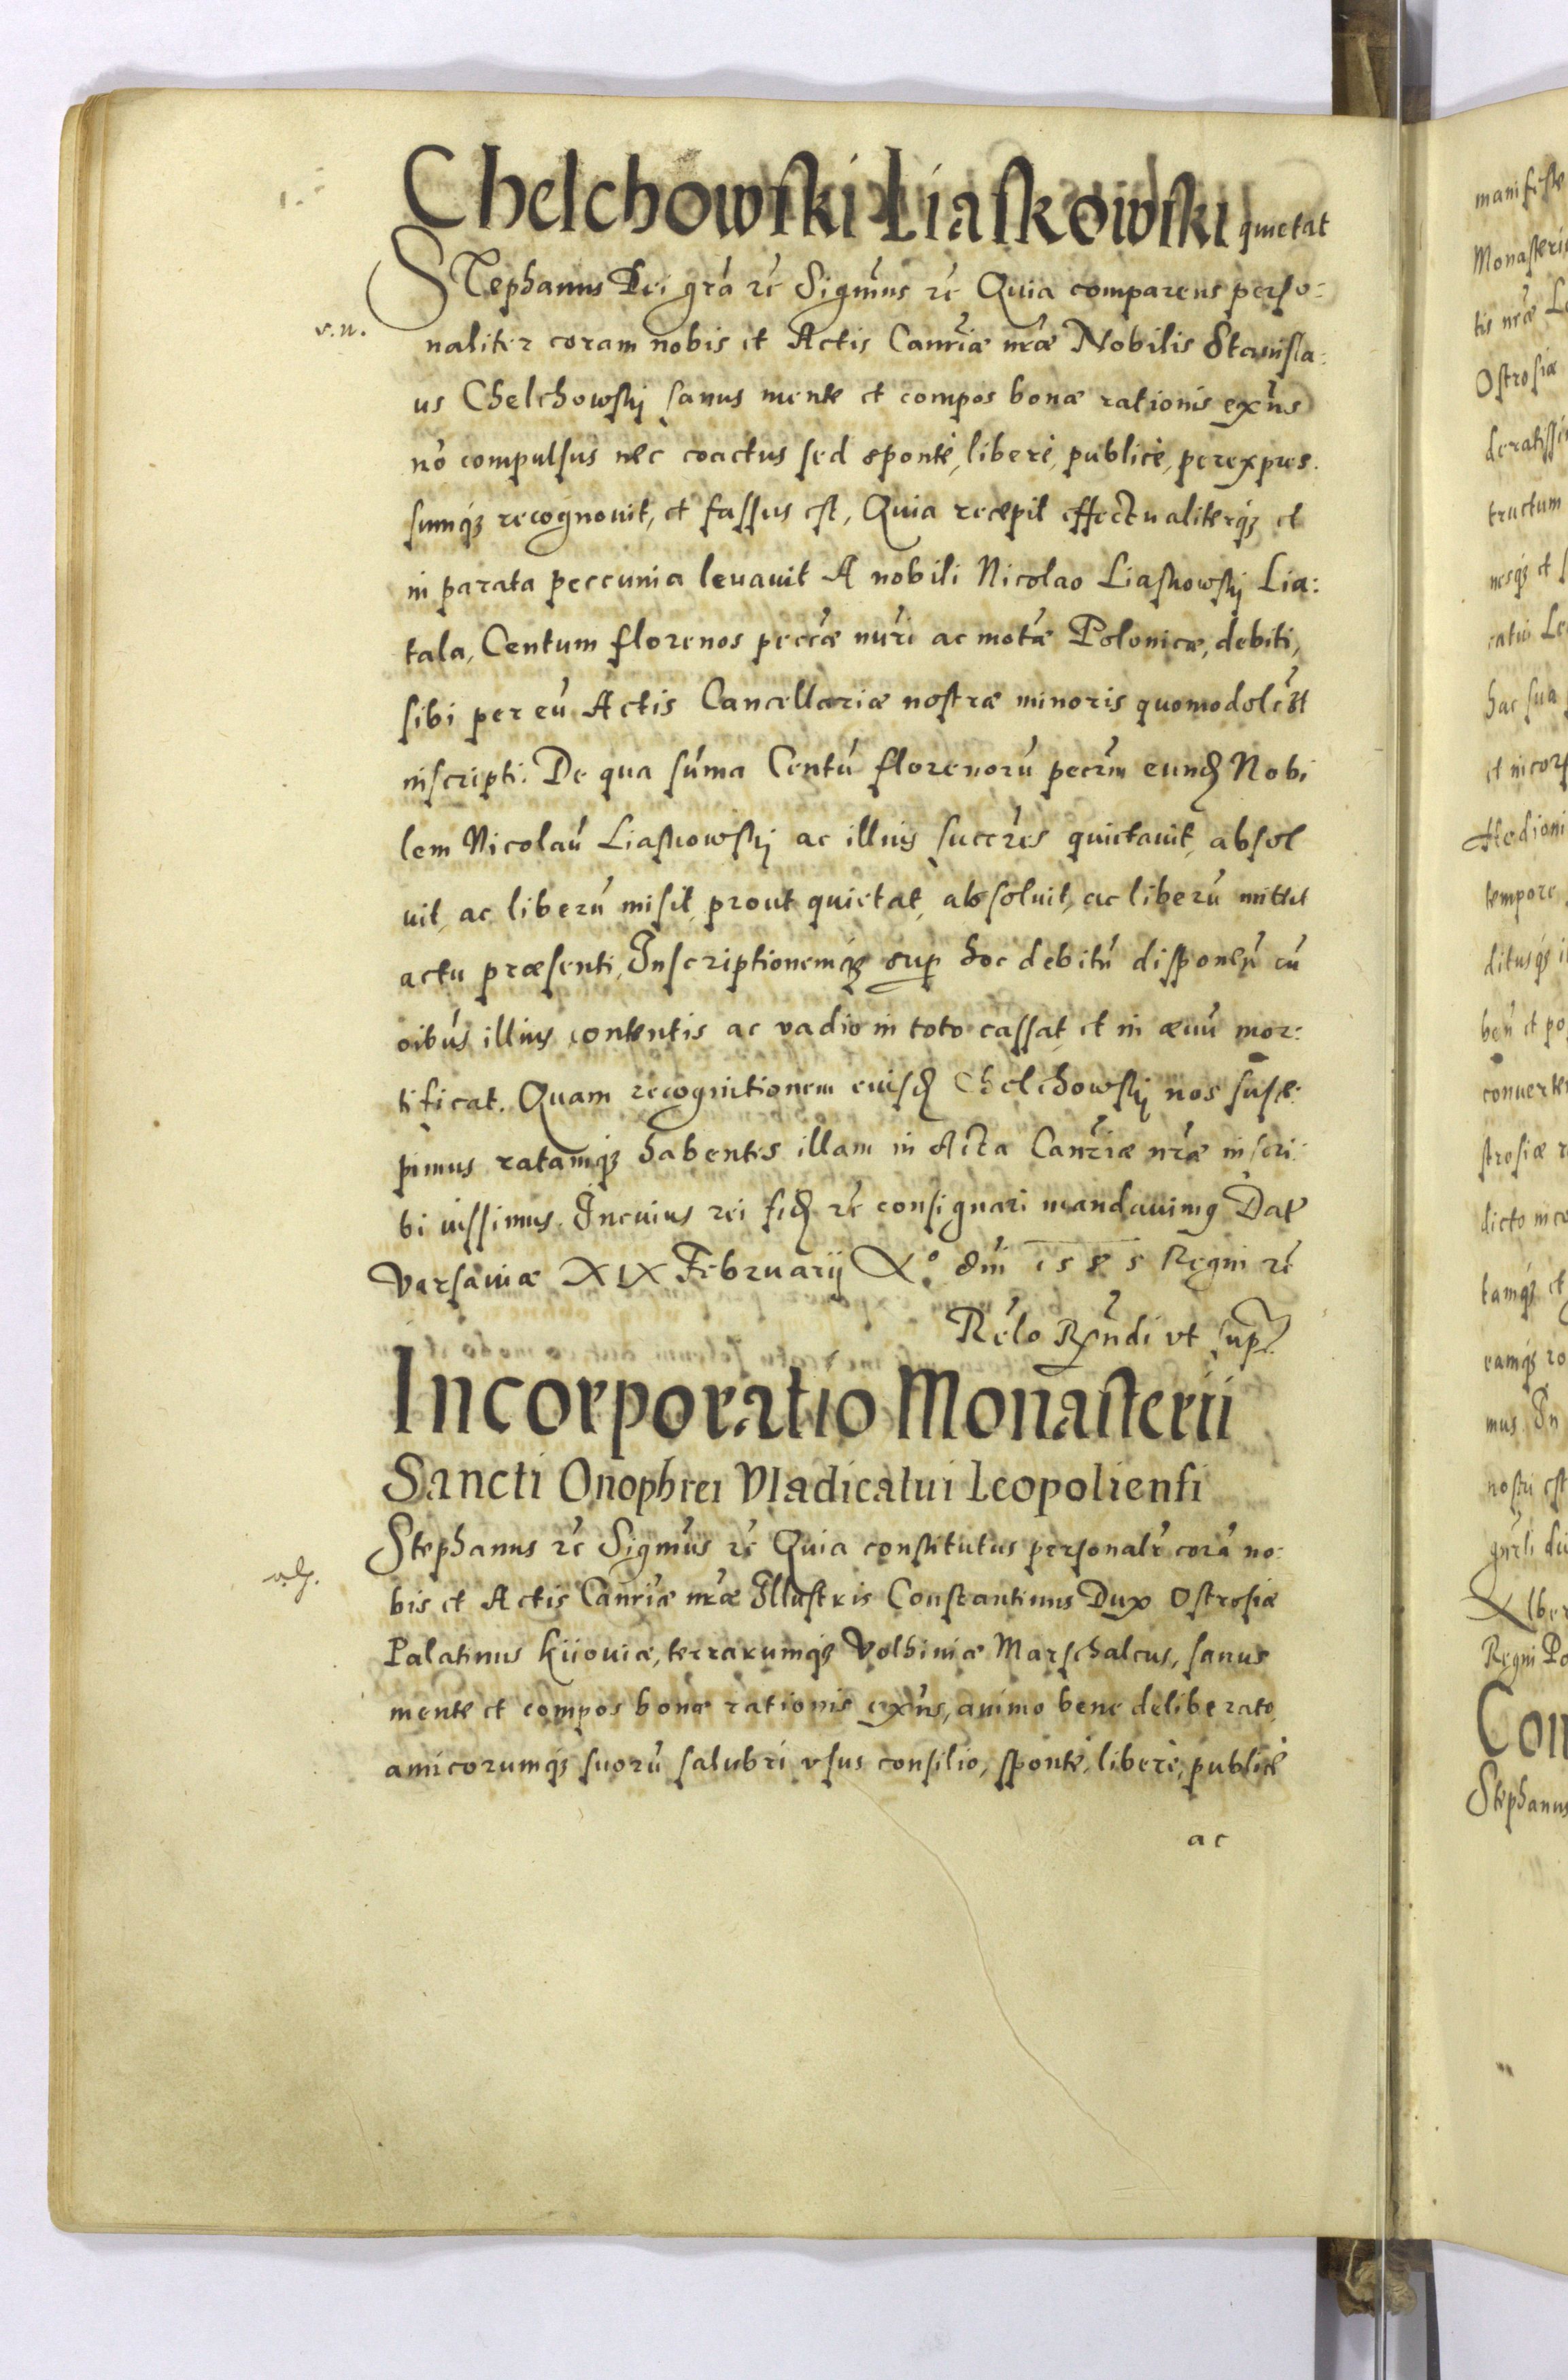 Chelchowski Liaskowski quietat
Stephanus Dei grã rẽ Sigmũs rẽ Quia comparens perso:
v. n.
naliter coram nobis et Actis Canr̃iæ nr̃æ Nobilis Stanisla:
us Chelchowskj sanus mente et compos bonæ rationis exñs
nõ compulsus nec coactus sed sponte, liberè, publicè, perexpres.
sumq3 recognouit, et fassus est, Quia recepit effectualiterq3 et
in parata peccunia leuauit A nobili Nicolao Liaskowskj Lia:
tala, Centum florenos pecc̃æ nũri ac motæ Polonicæ, debiti,
sibi per eũ Actis Cancellariæ nostræ minoris quomodolt̃
inscripti. De qua sũma Centũ florenorũ pecr̃m eund̃ Nobi
lem Nicolaũ Liaskowskj ac illius succr̃es quietauit, absol
uit, ac liberũ misit, prout quietat, absoluit, ac liberũ mittit
actu præsenti, Inscriptionemq3 sup hoc debitũ disponeñ cũ
oibũs illius contentis ac vadio in toto cassat, et in æuũ mor:
tificat. Quam recognitionem eiusd̃ Chelchowskj nos susce:
pimus ratamq3 habentes illam in Acta Canr̃iæ nr̃æ inscri:
bi iussimus. In cuius rei fid̃ rẽ consignari mandauimus Dat
Varsauiæ XIX Februarij Aº dñi 1585 Regni rẽ
Rẽlo Rxñdi vt sup.
Incorporatio Monasterii
Sancti Onophrei Vladicatui Leopoliensi
Stephanus rẽ Sigmũs rẽ Quia constitutus personalr̃ corã no:
bis et Actis Canr̃iæ nr̃æ Illustris Constantinus Dux Ostrosiæ
Palatinus Kiiouiæ, terrarumq3 Volhiniæ Marschalcus, sanus
mente et compos bonæ rationis exñs, animo bene deliberato,
amicorumq3 suorũ salubri vsus consilio, sponte, liberè, publicè
ac
manifeste
Monasteri
tis nr̃æ
Ostrosiæ
tructum
hac sua
tempore
conuerte
strosiæ
mus In
nostri est
Regni Po
Con
Stephanus